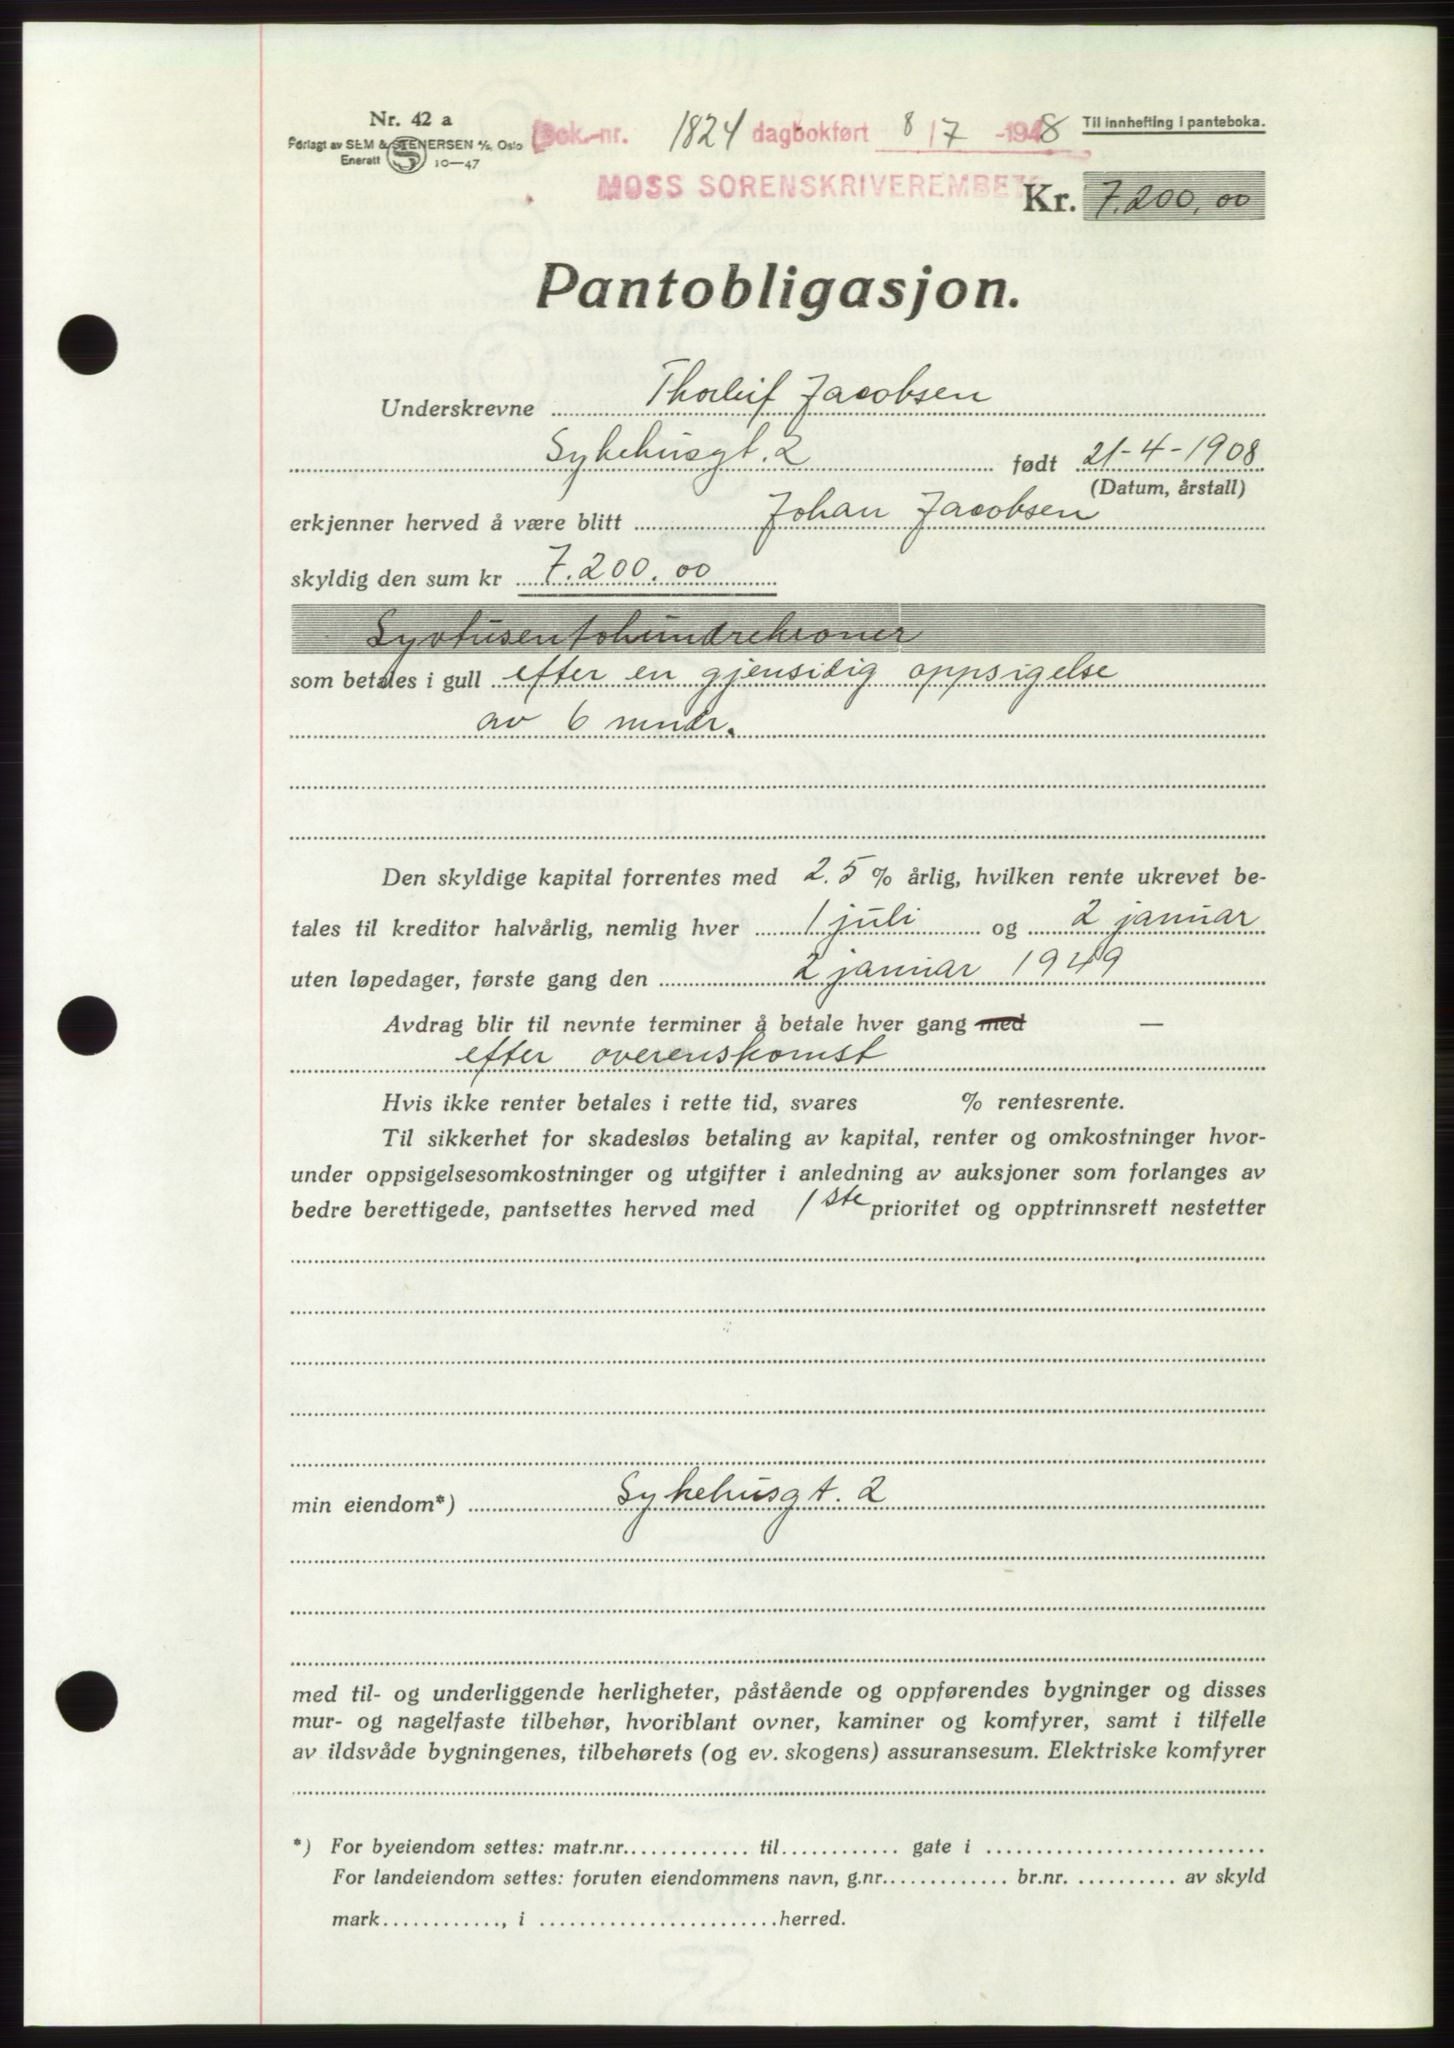 Nr. 42 a
Forlagt av SEM & STENERSEN A/S, Oslo
Enerett 10—47
Dok.-nr. 1824 dagbokført 8/7 -1948
Til innhefting i panteboka.
MOSS SORENSKRIVEREMBETE
Kr. 7.200,00
Pantobligasjon.
Underskrevne Thorleif Jacobsen
Sykehusgt. 2 født 21-4-1908
(Datum, årstall)
erkjenner herved å være blitt Johan Jacobsen
skyldig den sum kr 7.200.00
Syvtusentohundrekroner
som betales i gull efter en gjensidig oppsigelse
av 6 mndr.
Den skyldige kapital forrentes med 2.5 % årlig, hvilken rente ukrevet be-
tales til kreditor halvårlig, nemlig hver 1 juli og 2 januar
uten løpedager, første gang den 2 januar 1949
Avdrag blir til nevnte terminer å betale hver gang med —
efter overenskomst
Hvis ikke renter betales i rette tid, svares % rentesrente.
Til sikkerhet for skadesløs betaling av kapital, renter og omkostninger hvor-
under oppsigelsesomkostninger og utgifter i anledning av auksjoner som forlanges av
bedre berettigede, pantsettes herved med 1ste prioritet og opptrinnsrett nestetter
min eiendom*) Sykehusgt. 2
med til- og underliggende herligheter, påstående og oppførendes bygninger og disses
mur- og nagelfaste tilbehør, hvoriblant ovner, kaminer og komfyrer, samt i tilfelle
av ildsvåde bygningenes, tilbehørets (og ev. skogens) assuransesum. Elektriske komfyrer
*) For byeiendom settes: matr.nr. ............ til ............ gate i ............
For landeiendom settes: foruten eiendommens navn, g.nr. ............ br.nr. .......... av skyld
mark ............, i ........................ herred.